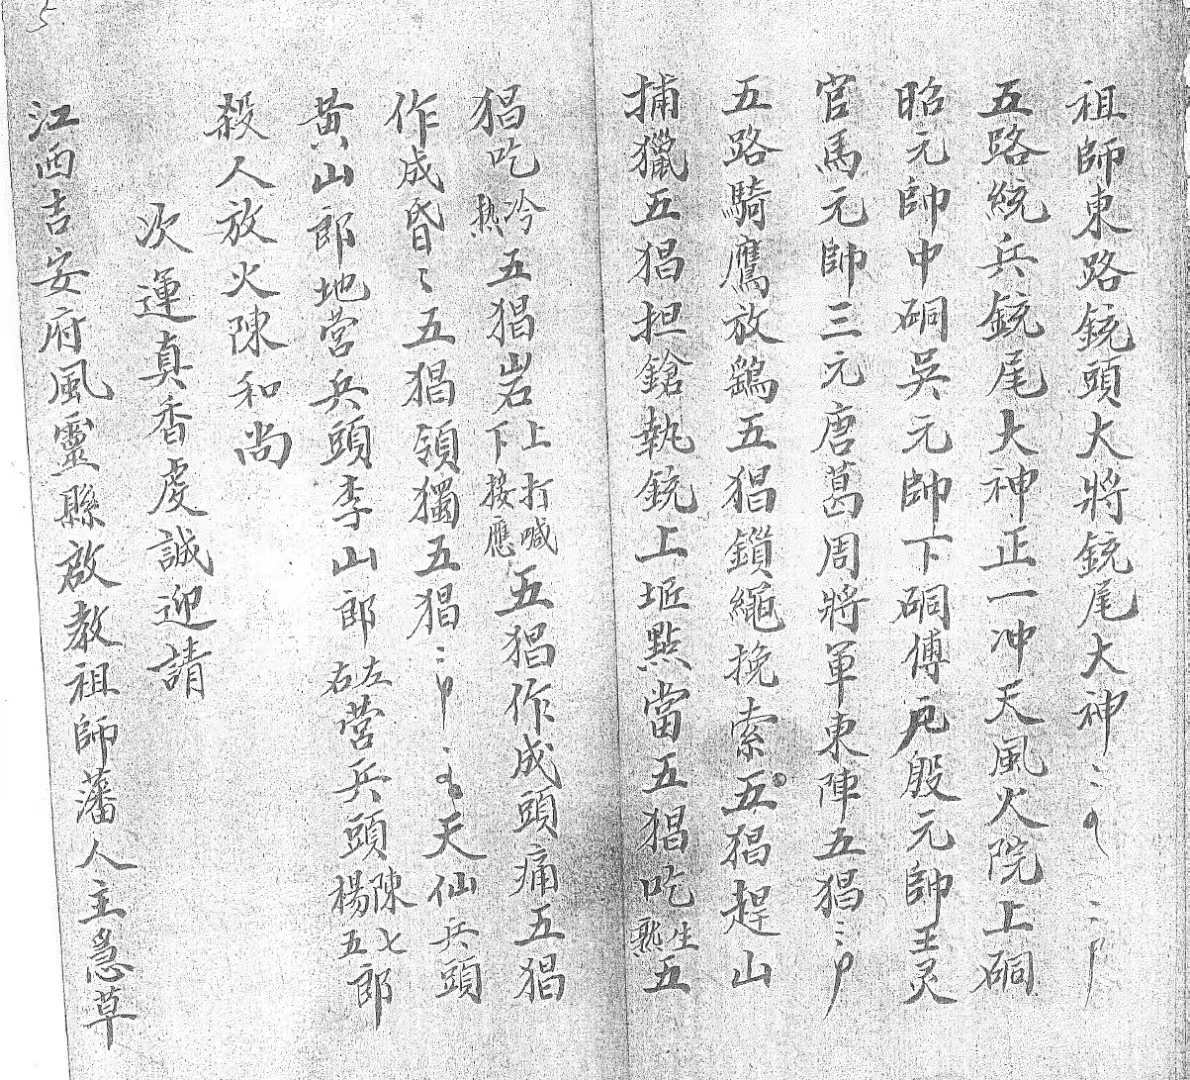 祖師東路銃頭大將銃尾大神
五路統兵銃尾大神正一冲天風火院上硐
昭元帥中硐吳元帥下硐傅元殷元帥王灵
官馬元帥三元唐葛周將軍東陣五猖
五路騎鷹放鷂五猖鎖繩挽索五猖趕山
捕獵五猖担鎗執銃上坵點當五猖吃生熟五
猖吃冷熱五猖岩上打喊下接應五猖作成頭痛五猖
作成昏〻五猖領獨五猖天仙兵頭
黄山郎地营兵頭李山郎左右营兵頭陳七楊五郎
殺人放火陳和尚
次運真香虔誠迎請
江西吉安府風靈縣啟教祖師藩人主急草
5